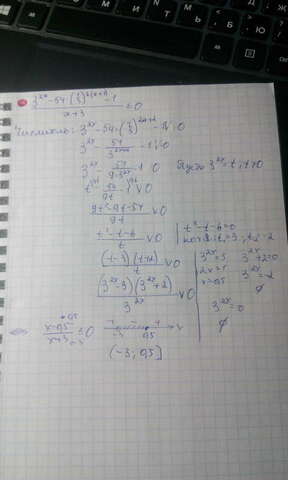 3^{2x} - 54·(1/3)^{2(x+1)} - 1 / x+3 ≤ 0
Числитель: 3^{2x} - 54·(1/3)^{2x+2} - 1 ∨ 0
3^{2x} - 54/3^{2x+2} - 1 ∨ 0
3^{2x} - 54/9·3^{2x} - 1 ∨ 0 Пусть 3^{2x} = t, t>0
t - 54/9t - 1 ∨ 0
9t² - 9t - 54 / 9t ∨ 0
t² - t - 6 / t ∨ 0 t² - t - 6 = 0
t₁ = 3, t₂ = -2
(t-3)(t+2) / t ∨ 0 3^{2x} = 3 3^{2x} + 2 = 0
(3^{2x} - 3)(3^{2x} + 2) / 3^{2x} ∨ 0 2x = 1 3^{2x} = -2
x = 0,5 ∅
3^{2x} = 0
∅
x - 0,5 / x + 3 ≤ 0
-3 0,5 x
(-3; 0,5]